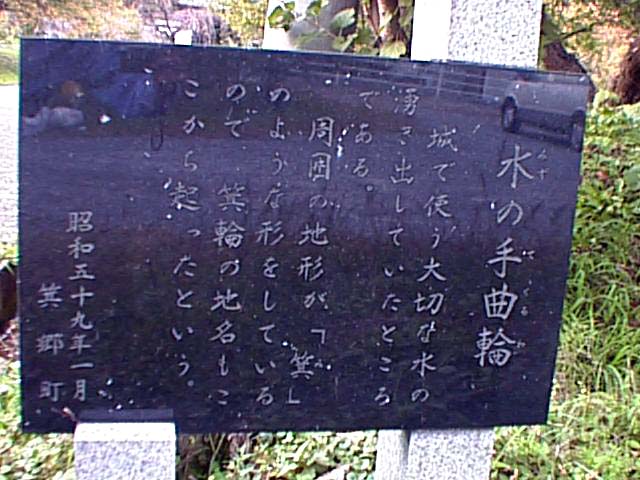 水の手曲輪
みず てぐるわ
城で使う大切な水の
湧き出していたところ
である。
周囲の地形が「箕」
のような形をしている
ので箕輪の地名もこ
こから起ったという。
昭和五十九年一月
箕郷町